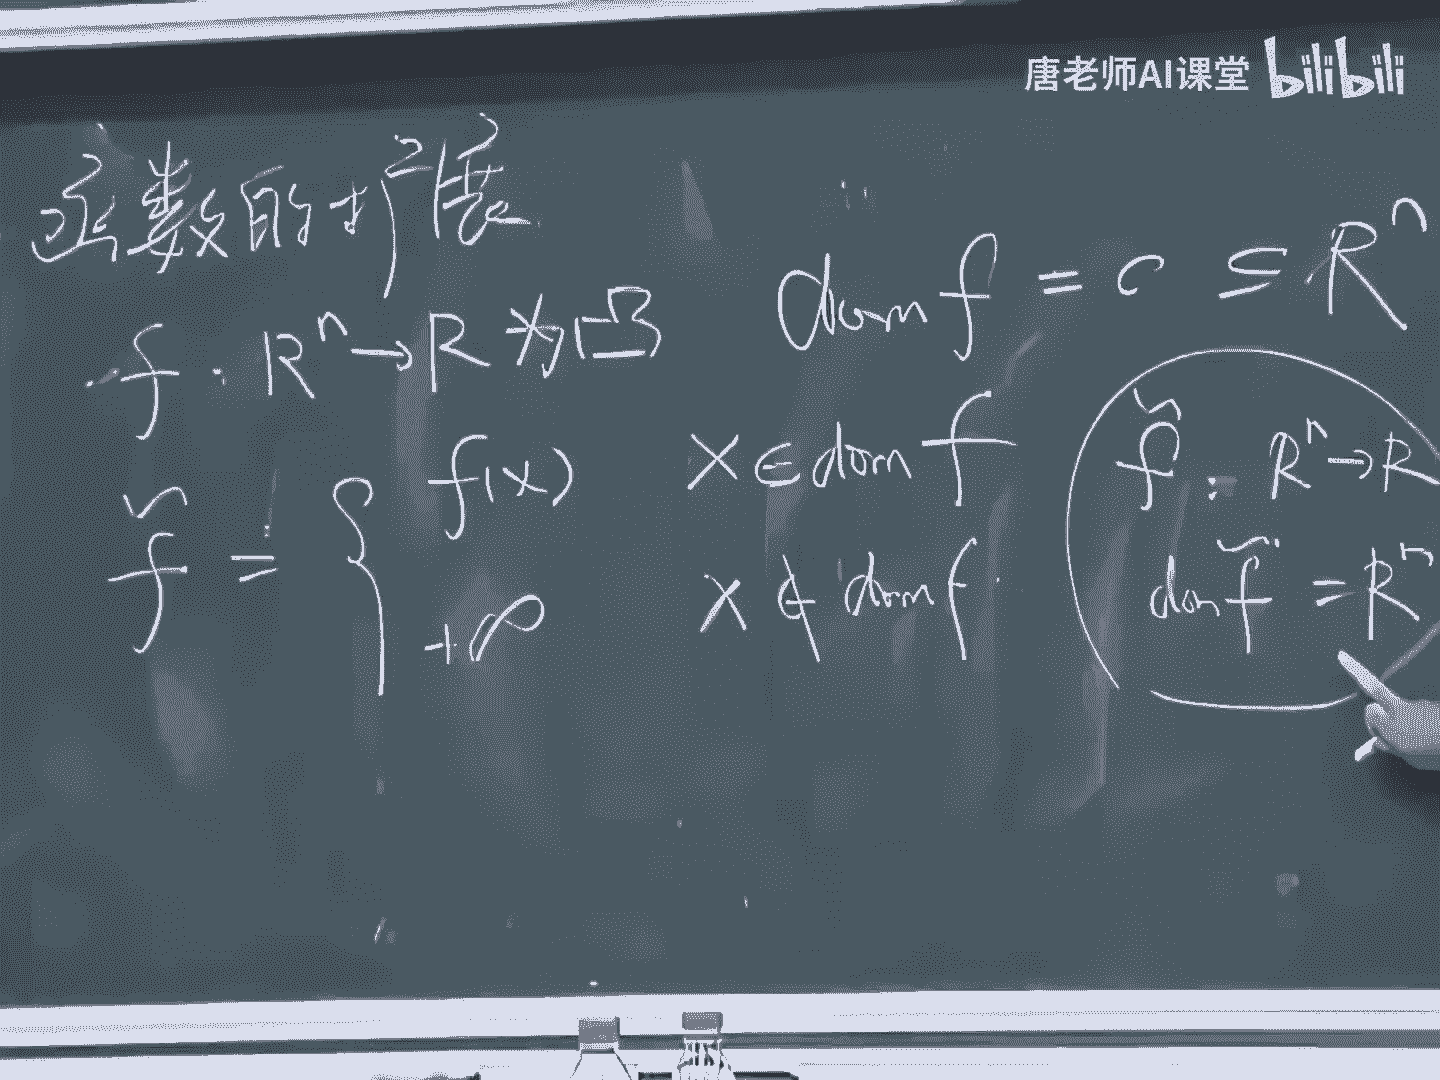 唐老师AI课堂 bilibili
函数的扩展
f : Rⁿ → R 为凸 dom f = C ⊆ Rⁿ
f̃ = { f(x) x ∈ dom f
+∞ x ∉ dom f
f̃ : Rⁿ → R
dom f̃ = Rⁿ